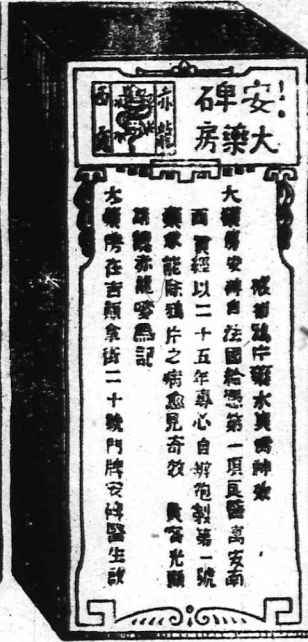 安碑
大藥房
赤龍
西貢
鴉片藥水神效
大藥房安碑自法國給憑第一項良醫萬安南
西貢經以二十五年專心自辦砲製第一號
藥水能除鴉片之病愈見奇效 貴客光顧
請認赤龍嘜爲記
大藥房在吉顛拿街二十號門牌安碑醫生啟